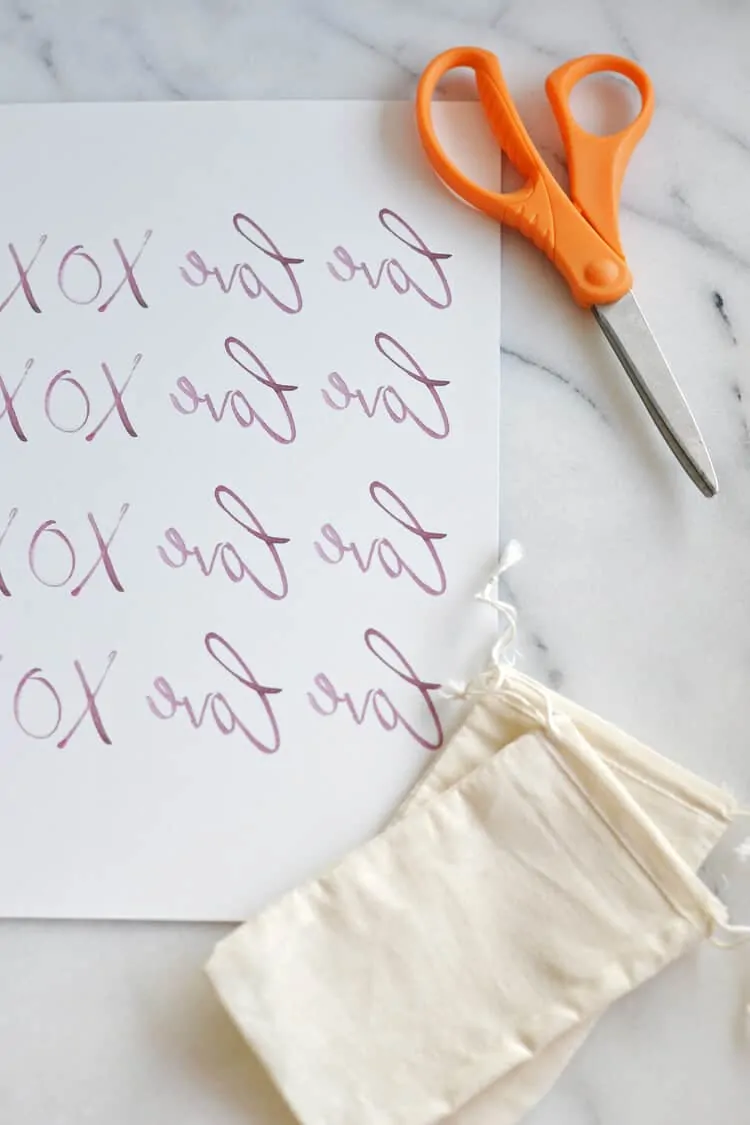 love love XOX
love love XOX
love love XOX
love love XO